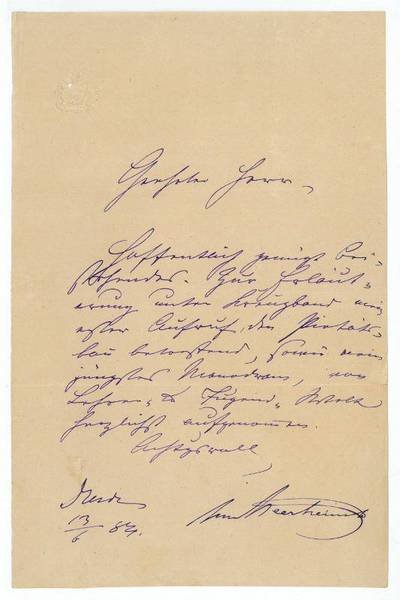 Geehrter Herr
Hoffentlich genügt bei-
stehendes. Zur Erläut-
erung unter Kreuzband mein
erster Aufruf, den Pietäts-
bau betreffend, sowie mein
jüngstes Monodram, von
Lehrer- & Jugend-Welt
herzlichst aufgenommen.
Achtungsvoll
Dresden
13/6 84.